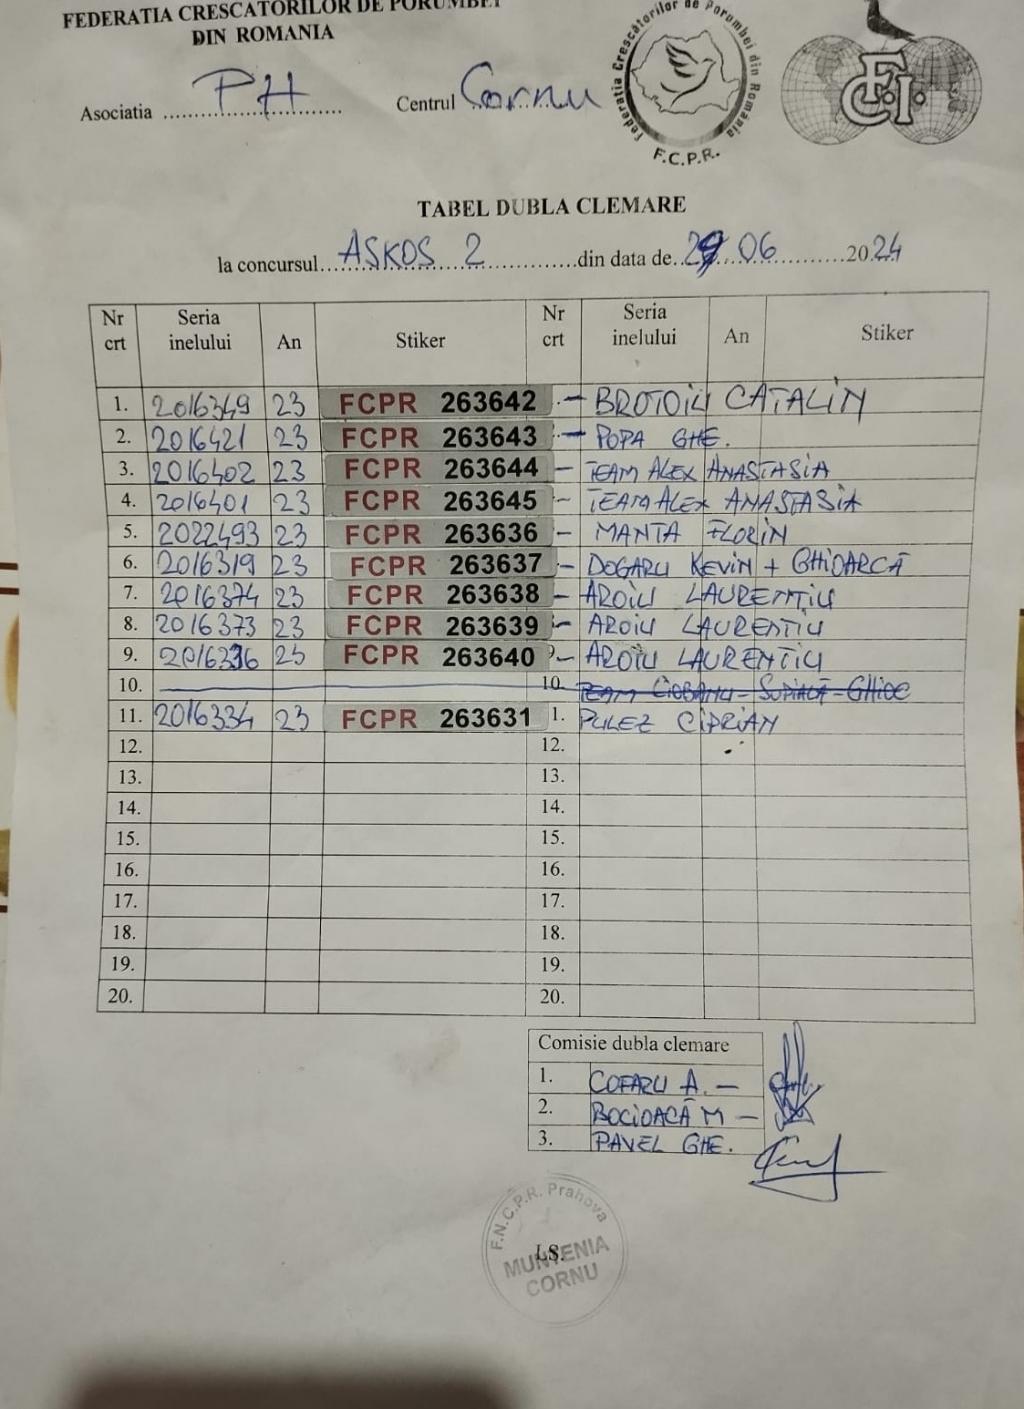 FEDERATIA CRESCATORILOR DE PORUMBEI
DIN ROMANIA
Asociatia PH
Centrul Cornu
Federatia Crescătorilor de Porumbei din Romania
F.C.P.R.
F.C.I.
TABEL DUBLA CLEMARE
la concursul ASKOS 2 din data de 29 06 2024
Nr crt Seria inelului An Stiker Nr crt Seria inelului An Stiker
1. 2016349 23 FCPR 263642 - BROTOIU CATALIN
2. 2016421 23 FCPR 263643 - POPA GHE.
3. 2016402 23 FCPR 263644 - TEAM ALEX ANASTASIA
4. 2016401 23 FCPR 263645 - TEAM ALEX ANASTASIA
5. 2022493 23 FCPR 263636 - MANTA FLORIN
6. 2016319 23 FCPR 263637 - DOGARU KEVIN + GHIOARCĂ
7. 2016374 23 FCPR 263638 - AROIU LAURENTIU
8. 2016373 23 FCPR 263639 - AROIU LAURENTIU
9. 2016336 23 FCPR 263640 9 - AROIU LAURENTIU
10. 10. TEAM CIOBANU - - GHIOC
11. 2016334 23 FCPR 263631 1. PULEZ CIPRIAN
12. 12.
13. 13.
14. 14.
15. 15.
16. 16.
17. 17.
18. 18.
19. 19.
20. 20.
Comisie dubla clemare
1. COFARU A. -
2. BOCIOACĂ M -
3. PAVEL GHE.
F.N.C.P.R. Prahova
L.S.
MUNTENIA
CORNU